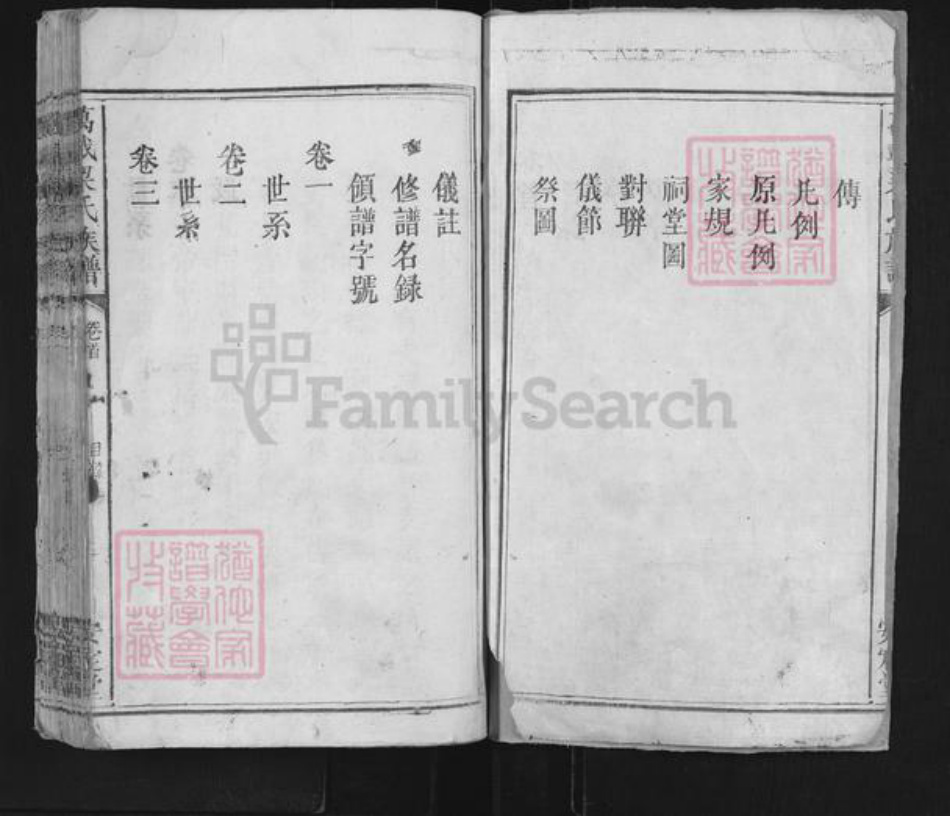 傳
凡例
原凡例
家規
祠堂圖
對聯
儀節
祭圖
儀註
修譜名錄
領譜字號
卷一
世系
卷二
世系
卷三
氏族譜
卷首
FamilySearch